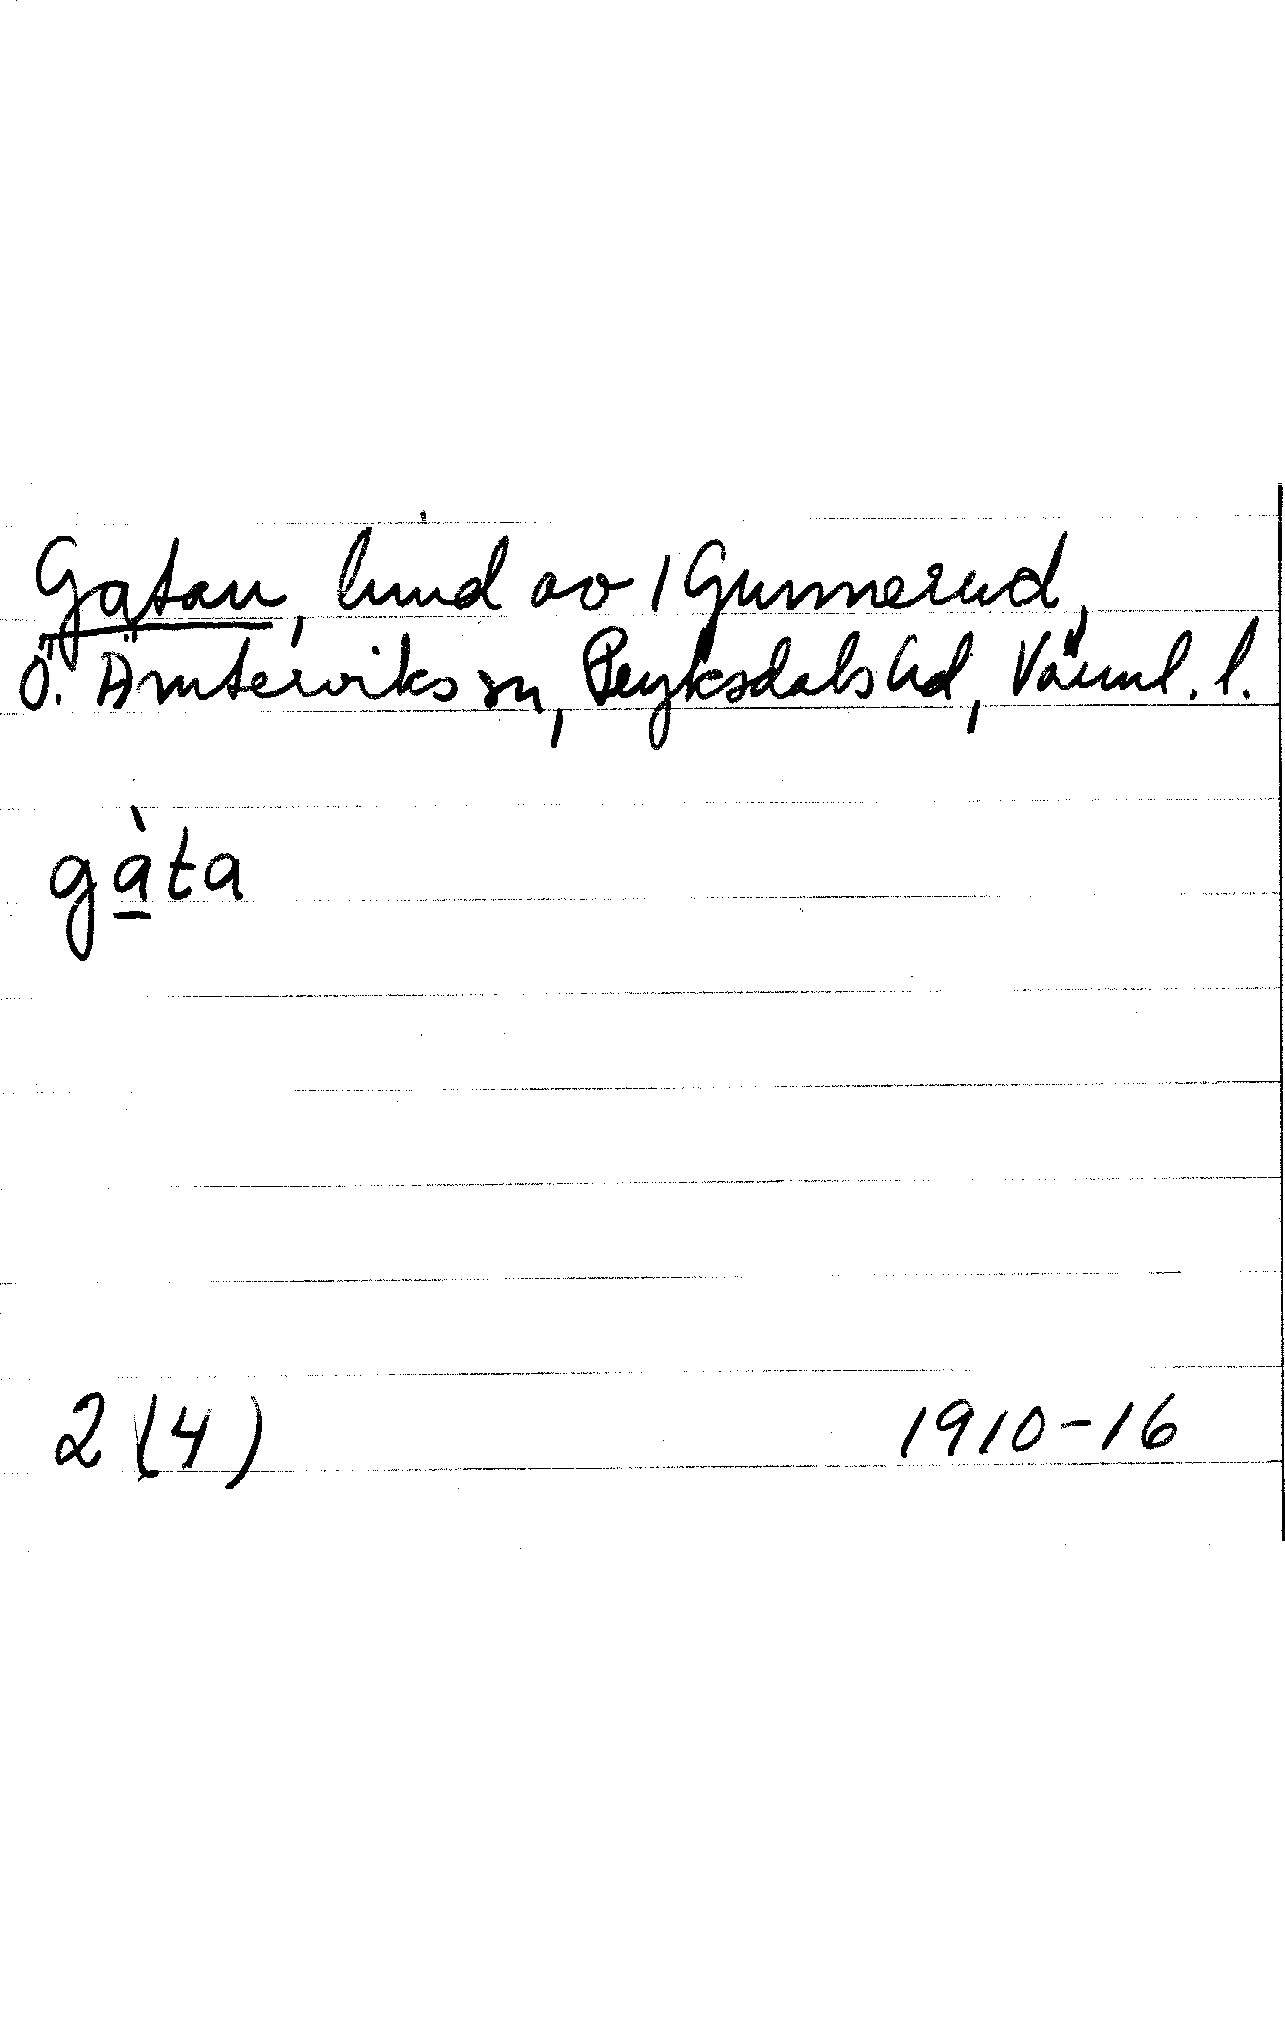 Gatan, lund av 1 Gunnerud,
Ö. Ämterviks sn, Fryksdals hd, Värml. l.
gàta
2 (4) 1910-16